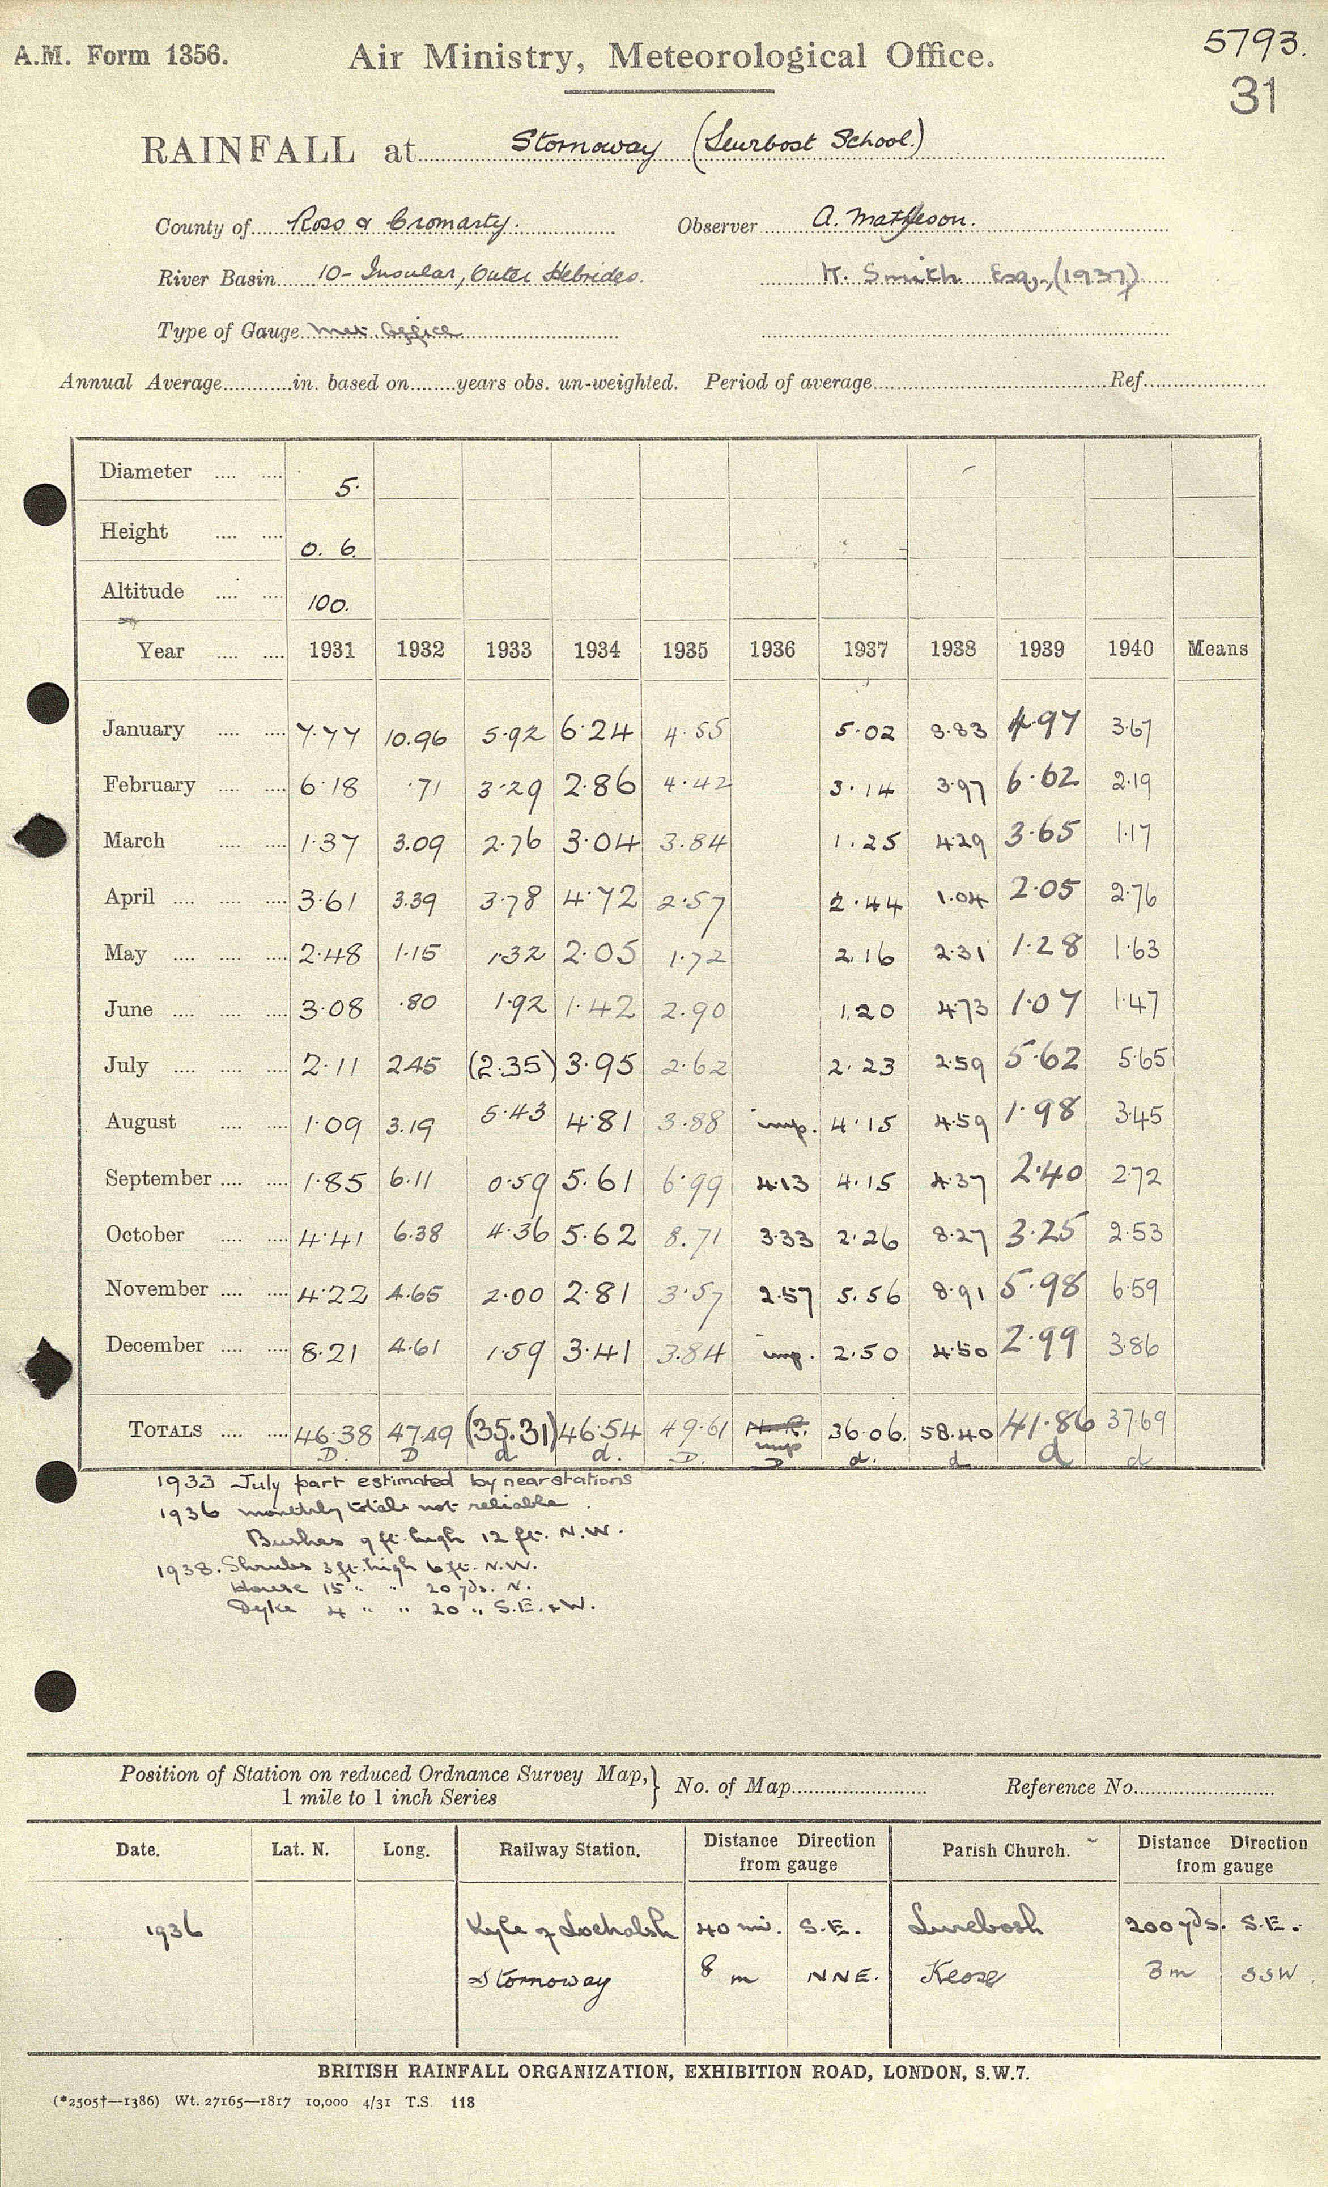 A.M. Form 1356. Air Ministry, Meteorological Office. 5793.
31
RAINFALL at Stornoway (Leurbost School)
County of Ross & Cromarty. Observer A. Matheson.
River Basin 10 - Insular, Outer Hebrides. K. Smith Esq., (1937)
Type of Gauge Met. Office
Annual Average............in. based on........years obs. un-weighted. Period of average.................... Ref....................
Diameter .... .... 5.
Height .... .... 0. 6.
Altitude .... .... 100.
Year .... .... 1931 1932 1933 1934 1935 1936 1937 1938 1939 1940 Means
January .... .... 7.77 10.96 5.92 6.24 4.55 5.02 3.83 4.97 3.67
February .... .... 6.18 .71 3.29 2.86 4.42 3.14 3.97 6.62 2.19
March .... .... 1.37 3.09 2.76 3.04 3.84 1.25 4.29 3.65 1.17
April .... .... .... 3.61 3.39 3.78 4.72 2.57 2.44 1.04 2.05 2.76
May .... .... .... 2.48 1.15 1.32 2.05 1.72 2.16 2.31 1.28 1.63
June .... .... .... 3.08 .80 1.92 1.42 2.90 1.20 4.73 1.07 1.47
July .... .... .... 2.11 2.45 (2.35) 3.95 2.62 2.23 2.59 5.62 5.65
August .... .... 1.09 3.19 5.43 4.81 3.88 imp. 4.15 4.59 1.98 3.45
September .... .... 1.85 6.11 0.59 5.61 6.99 4.13 4.15 4.37 2.40 2.72
October .... .... 4.41 6.38 4.36 5.62 8.71 3.33 2.26 8.27 3.25 2.53
November .... .... 4.22 4.65 2.00 2.81 3.57 2.57 5.56 8.91 5.98 6.59
December .... .... 8.21 4.61 1.59 3.41 3.84 imp. 2.50 4.50 2.99 3.86
TOTALS .... .... 46.38 47.49 (35.31) 46.54 49.61 N.R. 36.06. 58.40 41.86 37.69
imp
D. D d d. D. D d. d d d
1933 July part estimated by near stations
1936 monthly totals not reliable.
Bushes 9 ft. high 12 ft. N.W.
1938. Shrubs 3 ft. high 6 ft. N.W.
House 15 " " 20 yds. N.
Dyke 4 " " 20 " S.E. & W.
Position of Station on reduced Ordnance Survey Map, 1 mile to 1 inch Series } No. of Map.................... Reference No....................
Date. Lat. N. Long. Railway Station. Distance Direction from gauge Parish Church. Distance Direction from gauge
1936 Kyle of Lochalsh 40 mi. S.E. Lurebosh 200 yds. S.E.
Stornoway 8 m NNE. Keose 3 m SSW.
BRITISH RAINFALL ORGANIZATION, EXHIBITION ROAD, LONDON, S.W.7.
(*2505†—1386) Wt. 27165—1817 10,000 4/31 T.S. 113